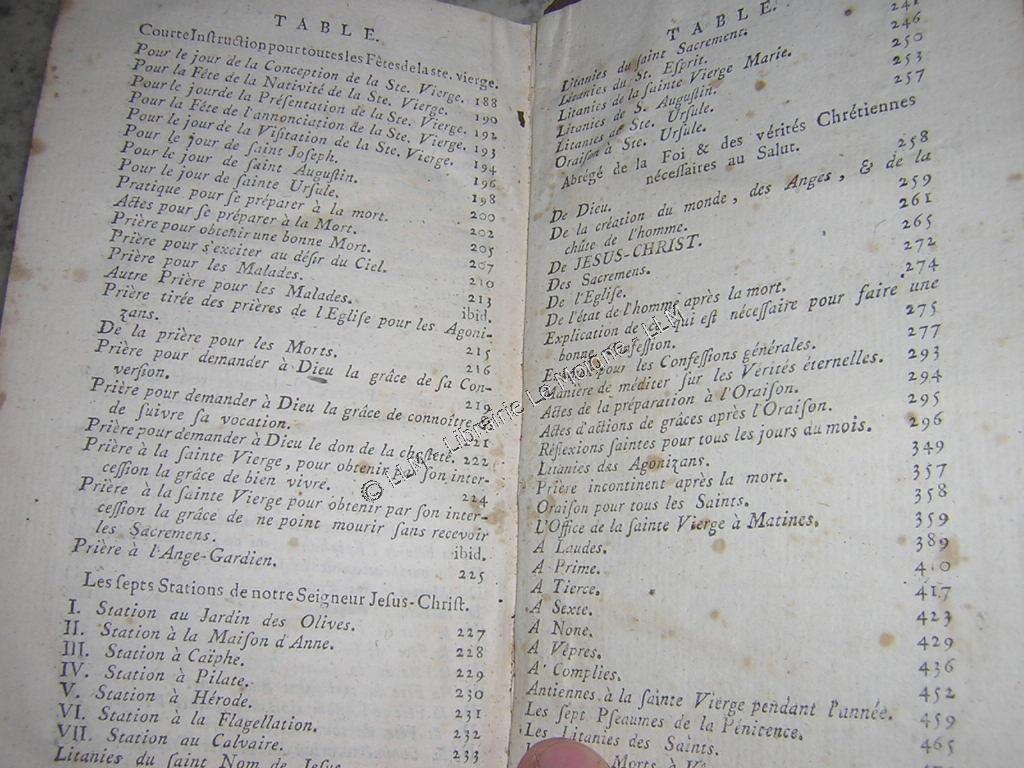 TABLE.
Courte Instruction pour toutes les Fêtes de la ste. vierge.
Pour le jour de la Conception de la Ste. Vierge. 188
Pour la Fête de la Nativité de la Ste. Vierge. 190
Pour le jour de la Présentation de la Ste. Vierge. 192
Pour la Fête de l'annonciation de la Ste. Vierge. 193
Pour le jour de la Visitation de la Ste. Vierge. 194
Pour le jour de saint Joseph. 196
Pour le jour de saint Augustin. 198
Pour le jour de sainte Ursule. 200
Pratique pour se préparer à la mort. 202
Actes pour se préparer à la Mort. 205
Prière pour obtenir une bonne Mort. 207
Prière pour s'exciter au désir du Ciel. 210
Prière pour les Malades. 213
Autre Prière pour les Malades. ibid.
Prière tirée des prières de l'Eglise pour les Agoni-
zans. 215
De la prière pour les Morts. 216
Prière pour demander à Dieu la grâce de sa Con-
version. 219
Prière pour demander à Dieu la grâce de connoître &
de suivre sa vocation. 221
Prière pour demander à Dieu le don de la chasteté. 222
Prière à la sainte Vierge, pour obtenir par son inter-
cession la grâce de bien vivre. 224
Prière à la sainte Vierge pour obtenir par son inter-
cession la grâce de ne point mourir sans recevoir
les Sacremens. ibid.
Prière à l'Ange-Gardien. 225
Les septs Stations de notre Seigneur Jesus-Christ.
I. Station au Jardin des Olives. 227
II. Station à la Maison d'Anne. 228
III. Station à Caïphe. 229
IV. Station à Pilate. 230
V. Station à Hérode. 231
VI. Station à la Flagellation. 232
VII. Station au Calvaire. 233
Litanies du saint Nom de Jesus.
TABLE.
Litanies du saint Sacrement. 241
Litanies du St. Esprit. 246
Litanies de la sainte Vierge Marie. 250
Litanies de S. Augustin. 253
Litanies de Ste. Ursule. 257
Oraison à Ste. Ursule.
Abrégé de la Foi & des vérités Chrétiennes
nécessaires au Salut.
De Dieu. 258
De la création du monde, des Anges, & de la
chûte de l'homme. 259
De JESUS-CHRIST. 261
Des Sacremens. 265
De l'Eglise. 272
De l'état de l'homme après la mort. 274
Explication de ce qui est nécessaire pour faire une
bonne Confession. 275
pour les Confessions générales. 277
Manière de méditer sur les Vérités éternelles. 293
Actes de la préparation à l'Oraison. 294
Actes d'actions de grâces après l'Oraison. 295
Réflexions saintes pour tous les jours du mois. 296
Litanies des Agonizans. 349
Prière incontinent après la mort. 357
Oraison pour tous les Saints. 358
L'Office de la sainte Vierge à Matines. 359
A Laudes. 389
A Prime. 410
A Tierce. 417
A Sexte. 423
A None. 429
A Vêpres. 436
A Complies. 452
Antiennes à la sainte Vierge pendant l'année. 459
Les sept Pseaumes de la Pénitence. 465
Les Litanies des Saints.
Morts à
© LLM - Librairie Le Moigne - LLM